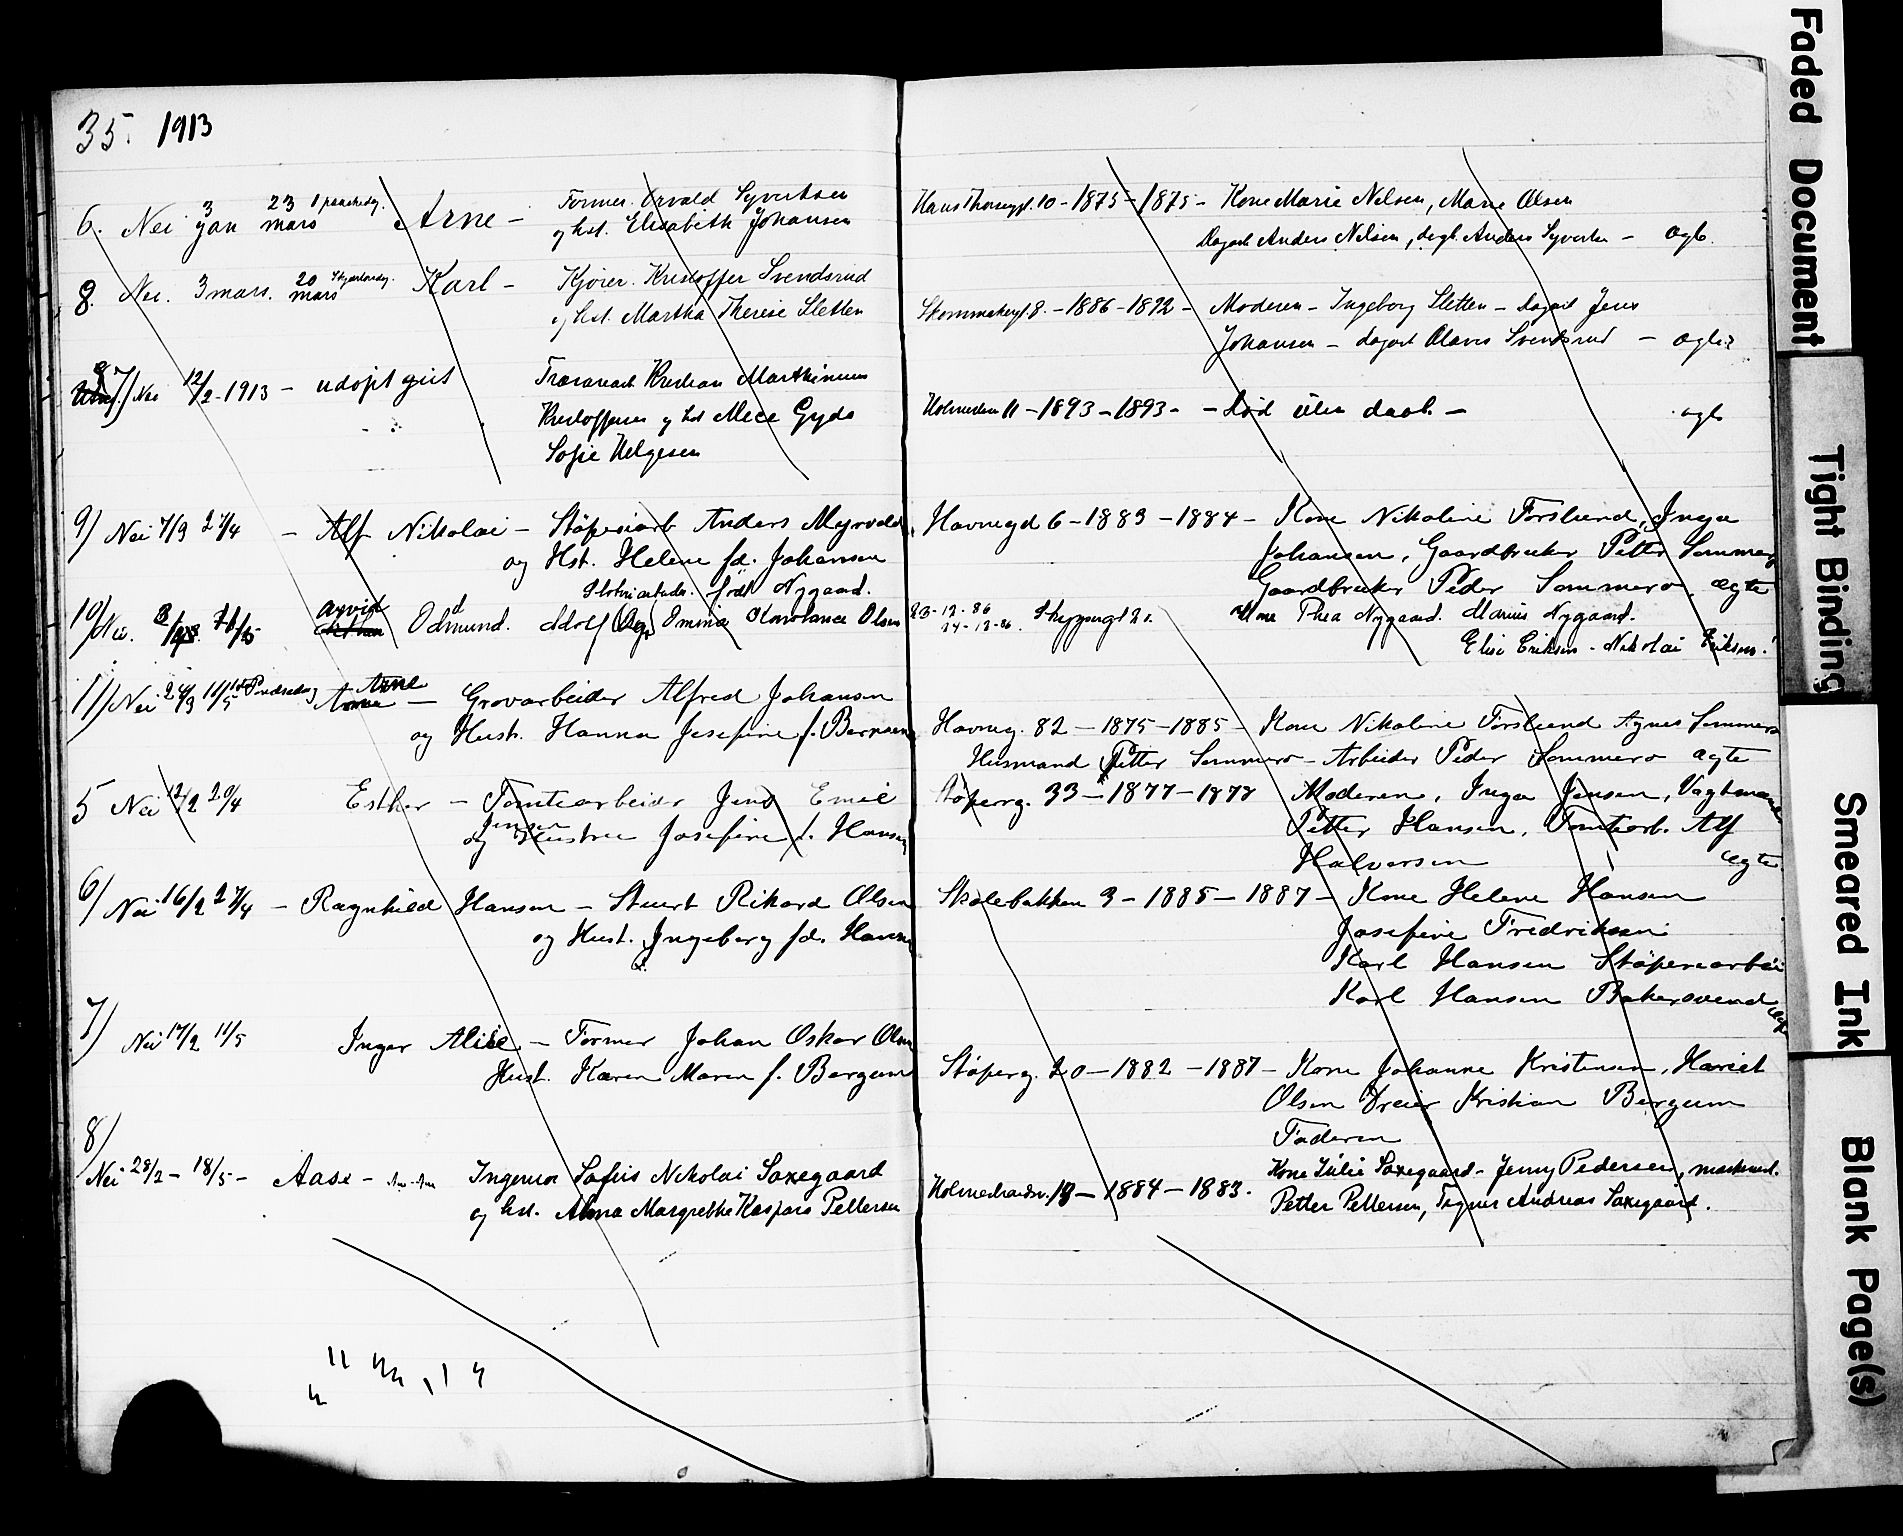 35. 1913
6. Nei 3 jan 23 mars 1 paaskedag. Arne - Former. Orvald Syvertsen
og hst. Elisabeth Johansen
Hans Thorsegt. 10 - 1875 - 1875 - Kone Marie Nilsen, Marie Olsen
Dagarb Anders Nilsen, degl. Anders Syvertsen - Ægt.
8. Nei. 3 mars. 20 mars Skjærtorsdag. Karl - Kjører. Kristoffer Svendsrud
og hst. Martha Therese Sletten
Skommakergt. 8. - 1886 - 1892 - Moderen - Ingeborg Sletten - Dagarb Jens
Johansen - dagarb Olaves Svendsrud - ægte
7) Nei 12/2 - 1913 - udøpt gut Kristian Marthinius
Kristoffersen og hst Alice Gyda
Sofie Helgesen
Holmenden 11 - 1893 - 1893 - - død uten daab. - ægte
9) Nei 7/3 27/4 - Alf Nikolai - Støperiarb Anders Myrvold
og Hst. Helene fd. Johansen
Havnegd 6 - 1883 - 1884 - Kone Nikoline Forslund, Inga
Johansen, Gaardbruker Petter Sommero
Gaardbruker Peder Sommero. ægte
10) Nei. Arvid Odmund. Adolf Omina Konstance Olsen
født Nygaard.
23-12-86
24-12-86. Skyggengt 21.
Kone Thea Nygaard. Marius Nygaard.
Elise Eriksen - Nikolai Eriksen!
11) Nei 24/3 11/5 1st Pindsedag Arne - Grovarbeider Alfred Johansen
og Hust. Hanna Josefine f. Berntsen
Havneg. 82 - 1875 - 1885 - Kone Nikoline Forslund Agnes Sommero
Husmand Petter Sommero - Arbeider Peder Sommero ægte
5 Nei 12/2 20/4 Esther - Tomtearbeider Jens Emil
Jensen
og Hustru Josefine f. Hansen
Støperg. 33 - 1877 - 1877 Moderen, Inga Jensen, Vagtmand
Petter Hansen, Tomtearb. Alf
Halversen ægte
6) Nei 16/2 27/4 - Ragnhild Hansen - Stuert Rikard Olsen
og Hust. Ingeborg fd. Hansen
Skolebakken 3 - 1885 - 1887 - Kone Helene Hansen
Josefine Fredriksen
Karl Hansen Støperiarbei
Karl Hansen Bakersvend ægte
7) Nei 17/2 11/5 Inger Alise - Former Johan Oskar Olsen
Hust. Karen Maren f. Bergum
Støperg. 20 - 1882 - 1887 - Kone Johanne Kristensen, Hariet
Olsen Dreier Kristian Bergum
Faderen
8/
Nei 28/2 - 18/5 - Aase - Ingeniør Sofus Nikolai Saxegaard
og hst. Alma Margrethe Kaspara Pettersen
Holmestrandsv. 18 - 1884 - 1883. Kone Julie Saxegaard - Jenny Pedersen, maskinist.
Petter Pettersen, Signer Andreas Saxegaard.
Faded Document
Tight Binding
Smeared Ink
Blank Page(s)